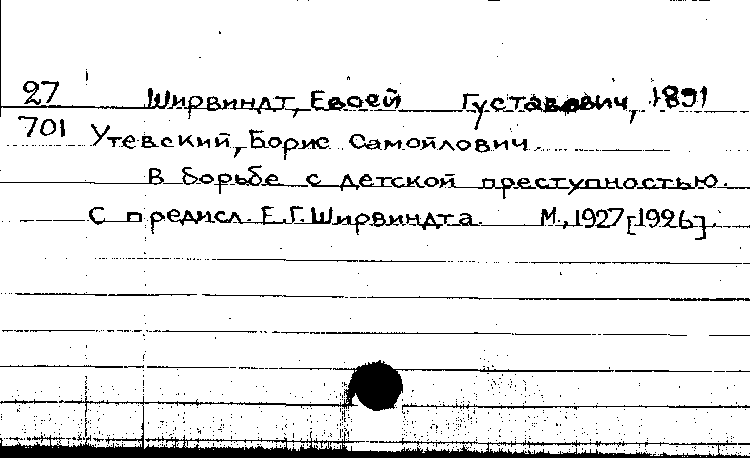 27 Ширвиндт, Евсей Густавович, 1891
701 Утевский, Борис Самойлович.
В борьбе с детской преступностью.
С предисл. Е.Г. Ширвиндта. М., 1927 [1926].